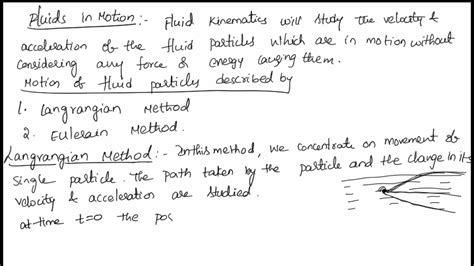 Fluids In Motion:- Fluid Kinematics will study the velocity &
acceleration of the fluid particles which are in motion without
Considering any force & energy causing them.
Motion of fluid particles described by
1. Langrangian Method
2. Eulerain Method.
Langrangian Method:- In this method, we concentrate on movement of
single particle. The path taken by the particle and the change in its
velocity & acceleration are studied.
at time t=0 the pos